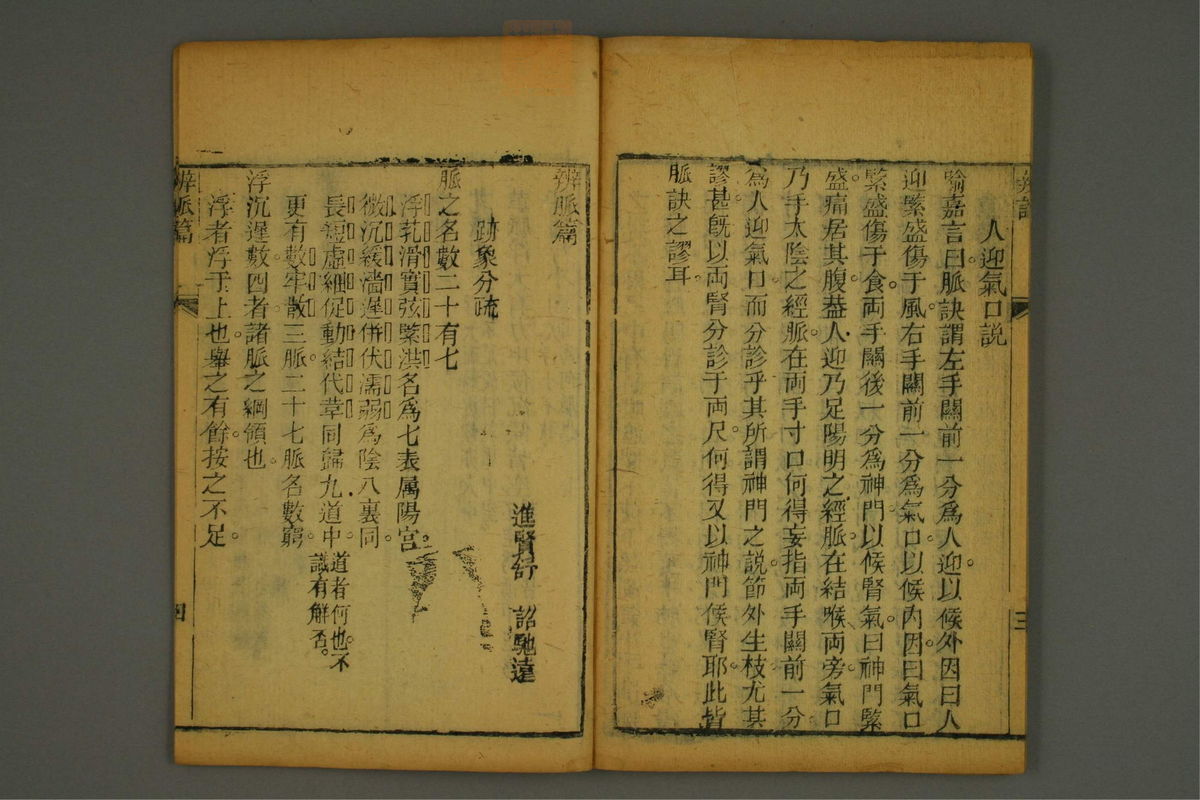 人迎氣口說
喻嘉言曰。脈訣謂左手關前一分為人迎。以候外因。曰人
迎緊盛傷于風。右手關前一分為氣口。以候內因。曰氣口
緊盛傷于食。両手關後一分為神門。以候腎氣。曰神門緊
盛。痛居其腹。葢人迎乃足陽明之經脈。在結喉両旁。氣口
乃手太陰之經脈。在両手寸口。何得妄指両手關前一分。
為人迎氣口。而分診乎。其所謂神門之說。節外生枝。尤其
謬甚。旣以両腎分診于両尺。何得又以神門候腎耶。此皆
脈訣之謬耳。
三
辨脈篇
跡象分疏
進賢舒 詔馳遠
脈之名數二十有七
浮芤滑實弦緊洪名為七表屬陽宮。
微沉緩濇遲併伏濡弱為陰八裏同。
長短虛細促動結代革同歸九道中。道者何也。不
識有解否。
更有數牢散三脈。二十七脈名數窮。
浮沉遲數四者。諸脈之綱領也。
浮者浮于上也。舉之有餘。按之不足。
辨脈篇
四